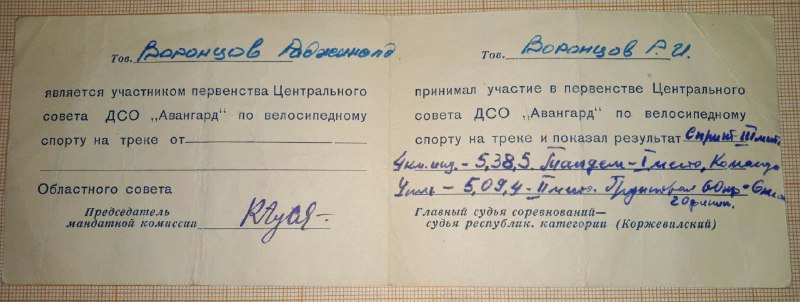 Тов. Воронцов Раджинальд
является участником первенства Центрального
совета ДСО „Авангард" по велосипедному
спорту на треке от
Областного совета
Председатель
мандатной комиссии
Тов. Воронцов Р. И.
принимал участие в первенстве Центрального
совета ДСО „Авангард" по велосипедному
спорту на треке и показал результат Спринт – III место
4 км. инд. – 5,38,5. Тандем – I место, Команда
4 км – 5,09,4 – II место. Групповая 60 кр – 6 место
20 финиш.
Главный судья соревнований—
судья республик. категории (Коржевилский)